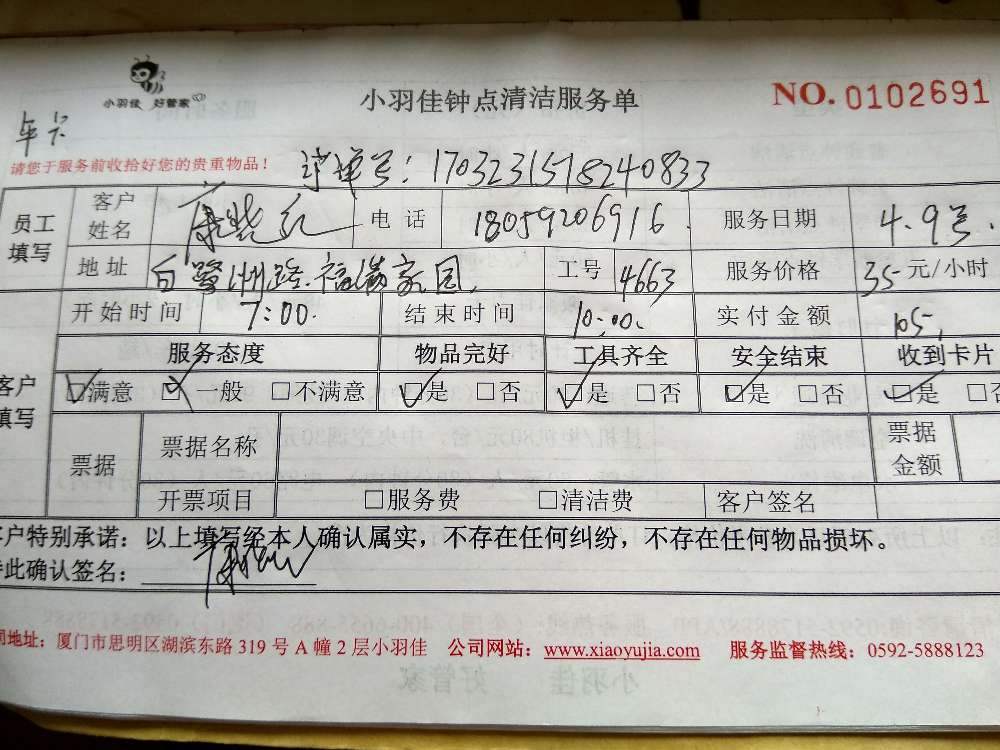 小羽佳 好管家
小羽佳钟点清洁服务单
NO. 0102691
年卡
请您于服务前收拾好您的贵重物品！
订单号：1703231518240833
员工填写 客户姓名 电话 18059206916 服务日期 4.9号
地址 白鹭洲路福满家园 工号 4663 服务价格 35元/小时
开始时间 7:00. 结束时间 10:00. 实付金额 105,
客户填写 服务态度 物品完好 工具齐全 安全结束 收到卡片
☑满意 ☑一般 □不满意 ☑是 □否 ☑是 □否 ☑是 □否 ☑是 □否
票据 票据名称 票据金额
开票项目 □服务费 □清洁费 客户签名
客户特别承诺：以上填写经本人确认属实，不存在任何纠纷，不存在任何物品损坏。
特此确认签名：
司地址：厦门市思明区湖滨东路 319 号 A 幢 2 层小羽佳 公司网站：www.xiaoyujia.com 服务监督热线：0592-5888123